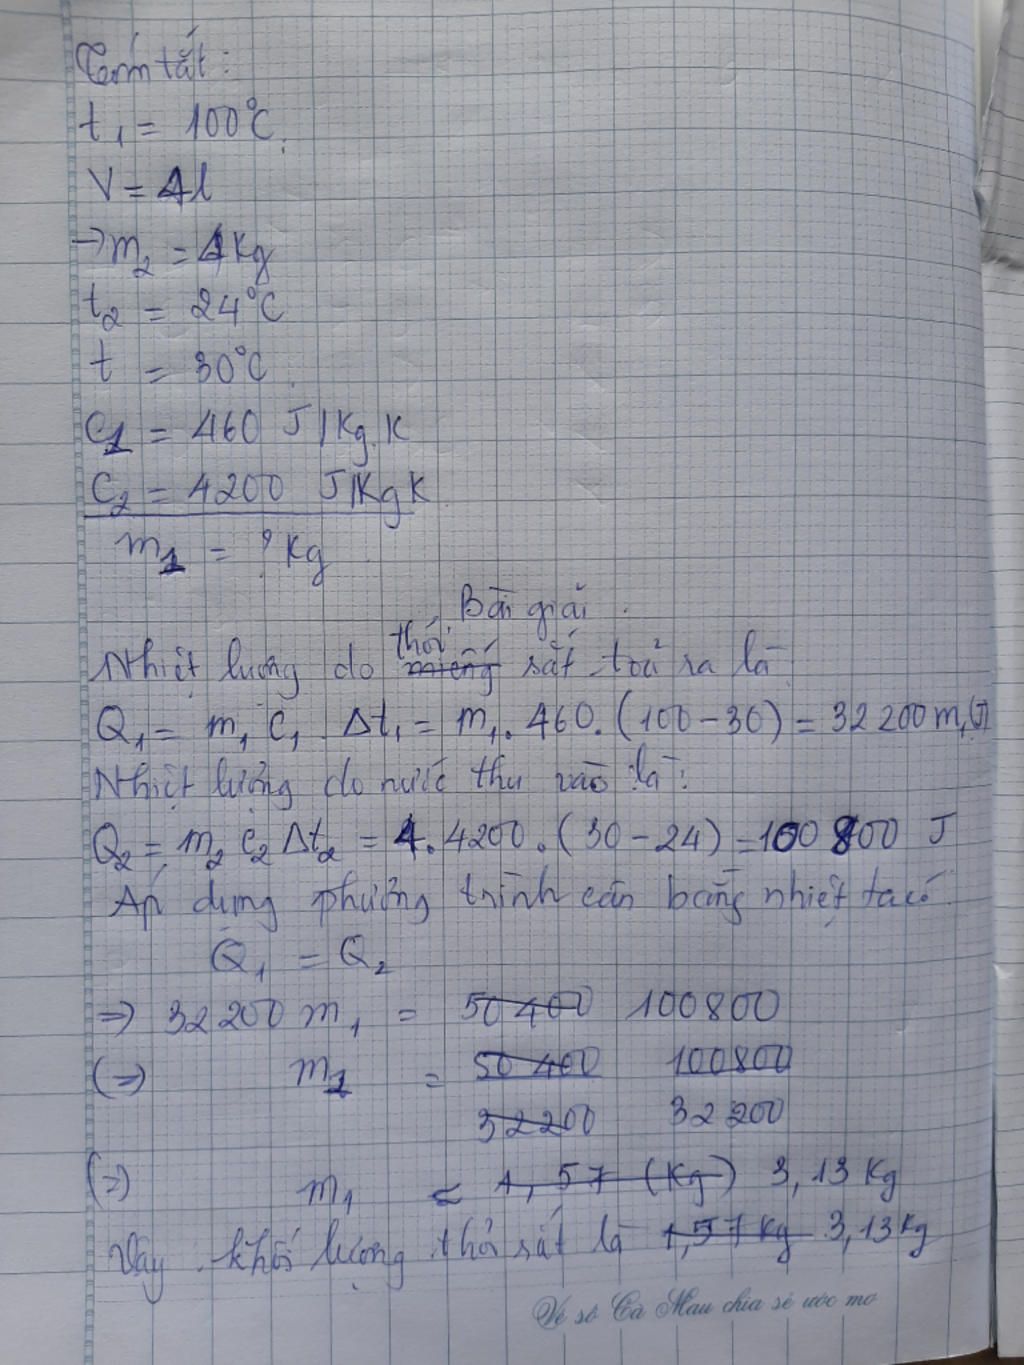 Tóm tắt:
t₁ = 100°C.
V = 4l
→ m₂ = 4 Kg
t₂ = 24°C
t = 30°C.
C₁ = 460 J/Kg.K
C₂ = 4200 J/KgK
m₁ = ? Kg
Bài giải.
thỏi
Nhiệt lượng do miếng sắt toả ra là
Q₁ = m₁ C₁ . Δt₁ = m₁. 460. (100 - 30) = 32 200 m₁(J)
Nhiệt lượng do nước thu vào là:
Q₂ = m₂ C₂ Δt₂ = 4. 4200. (30 - 24) = 100 800 J
Áp dụng phương trình cân bằng nhiệt ta có
Q₁ = Q₂
=> 32 200 m₁ = 50 400 100 800
(=>) m₁ = 50 400 100 800
32 200 32 200
(=>) m₁ ≈ 1,57 (Kg) 3,13 Kg
Vậy khối lượng thỏi sắt là 1,57 Kg 3,13 Kg
Vé số Cà Mau chia sẻ ước mơ